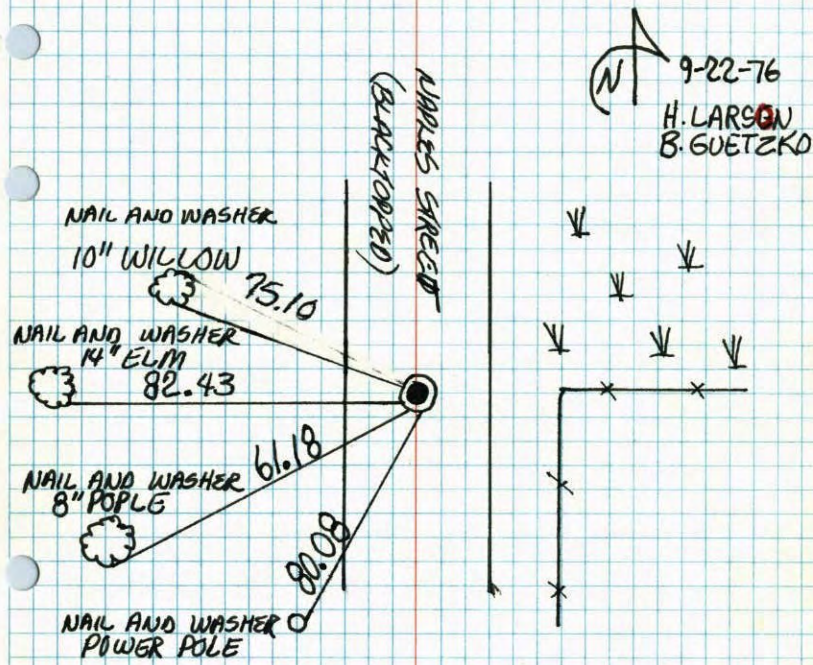 9-22-76
H. LARSON
B. GUETZKO
N
NAPLES STREET
(BLACKTOPPED)
NAIL AND WASHER
10" WILLOW
75.10
NAIL AND WASHER
14" ELM
82.43
NAIL AND WASHER
8" POPLE
61.18
80.08
NAIL AND WASHER
POWER POLE